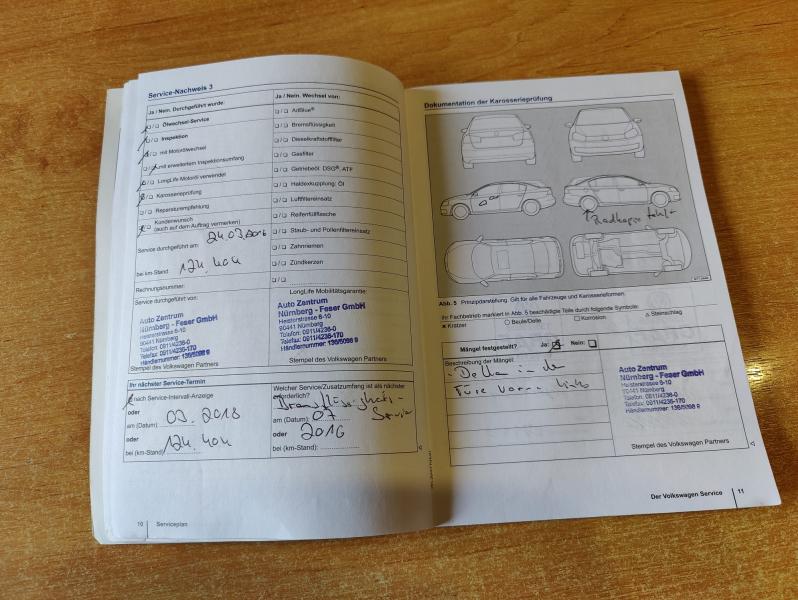 Service-Nachweis 3
Ja / Nein. Durchgeführt wurde:
Ölwechsel-Service
Inspektion
mit Motorölwechsel
mit erweitertem Inspektionsumfang
LongLife-Motoröl verwendet
Karosserieprüfung
Reparaturempfehlung
Kundenwunsch
(auch auf dem Auftrag vermerken)
Service durchgeführt am 24.03.2016
bei km-Stand 124.404
Rechnungsnummer:
Service durchgeführt von:
Auto Zentrum
Nürnberg - Feser GmbH
Heisterstrasse 6-10
90441 Nürnberg
Telefon: 0911/4236-0
Telefax: 0911/4236-170
Händlernummer: 136/5098 9
Stempel des Volkswagen Partners
Ja / Nein. Wechsel von:
AdBlue®
Bremsflüssigkeit
Dieselkraftstofffilter
Gasfilter
Getriebeöl: DSG®, ATF
Haldexkupplung: Öl
Luftfiltereinsatz
Reifenfüllflasche
Staub- und Pollenfiltereinsatz
Zahnriemen
Zündkerzen
LongLife Mobilitätsgarantie:
Auto Zentrum
Nürnberg - Feser GmbH
Heisterstrasse 6-10
90441 Nürnberg
Telefon: 0911/4236-0
Telefax: 0911/4236-170
Händlernummer: 136/5098 9
Stempel des Volkswagen Partners
Ihr nächster Service-Termin
nach Service-Intervall-Anzeige
oder
am (Datum): 03.2018
oder
bei (km-Stand) 124.404
Welcher Service/Zusatzumfang ist als nächster
erforderlich?
Bremsflüssigkeits-
Service
am (Datum): 07
oder 2016
bei (km-Stand):
10 Serviceplan
Dokumentation der Karosserieprüfung
Radkappe fehlt
Abb. 5 Prinzipdarstellung. Gilt für alle Fahrzeuge und Karosserieformen.
Ihr Fachbetrieb markiert in Abb. 5 beschädigte Teile durch folgende Symbole:
× Kratzer ○ Beule/Delle □ Korrosion △ Steinschlag
Mängel festgestellt? Ja: Nein:
Beschreibung der Mängel:
- Delle in de
Türe vorne links
Auto Zentrum
Nürnberg - Feser GmbH
Heisterstrasse 6-10
90441 Nürnberg
Telefon: 0911/4236-0
Telefax: 0911/4236-170
Händlernummer: 136/5098 9
Stempel des Volkswagen Partners
Der Volkswagen Service 11